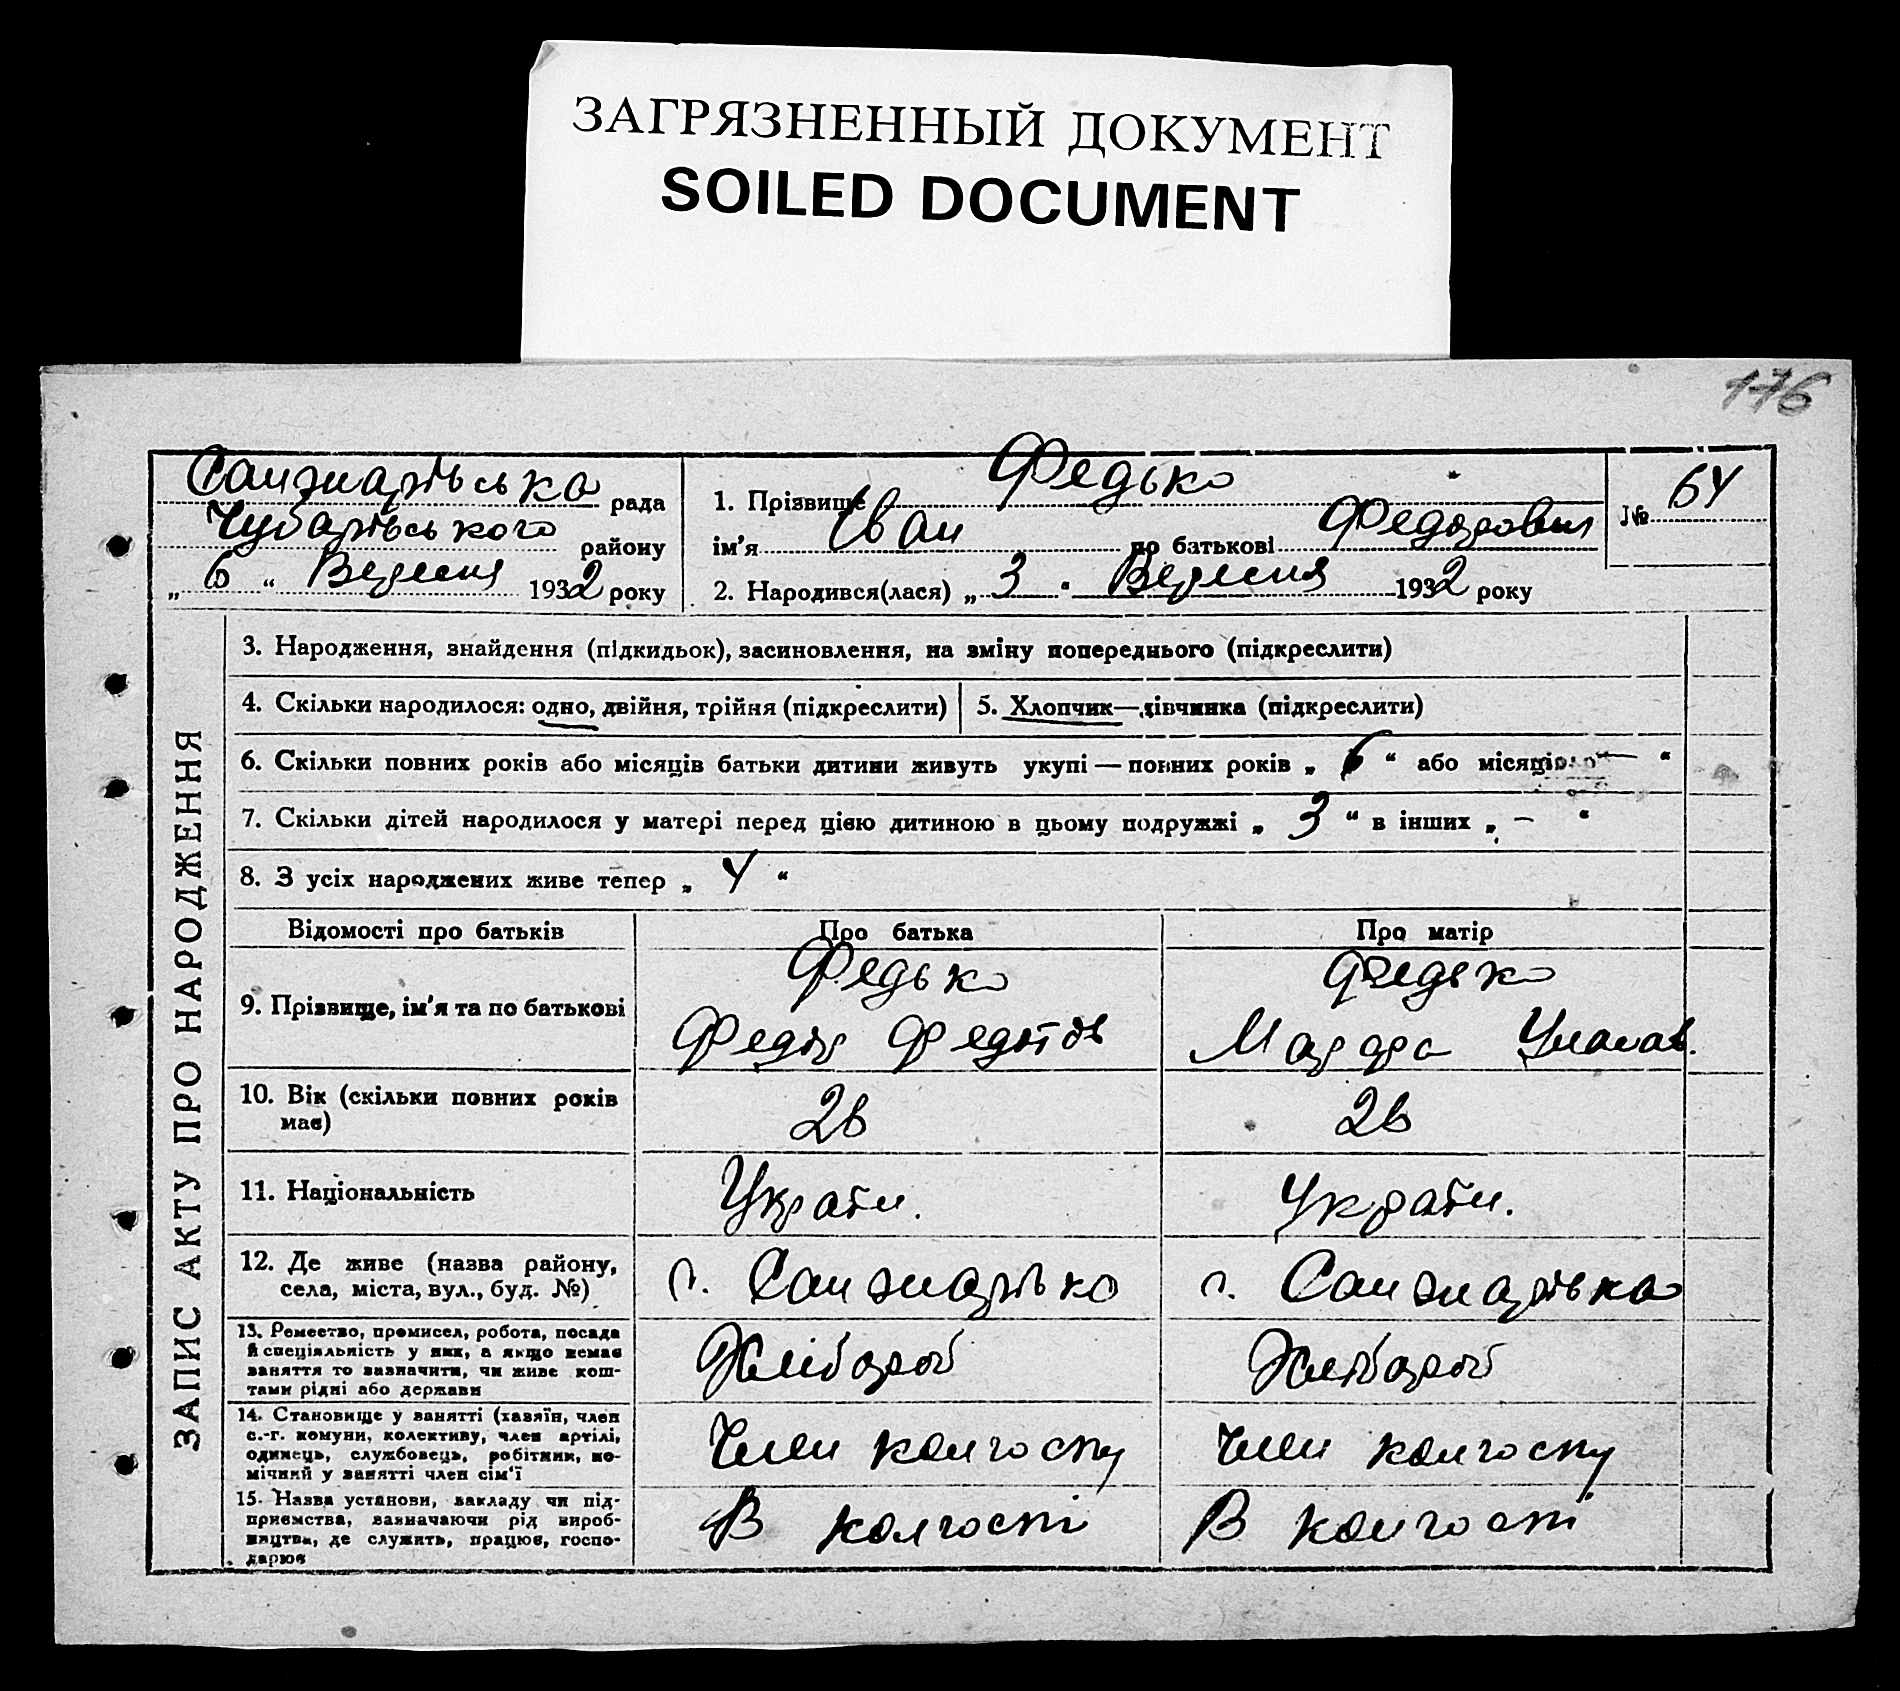 ЗАГРЯЗНЕННЫЙ ДОКУМЕНТ
SOILED DOCUMENT
176
Санжарівська рада
Чубарівського району
„ 6 “ Вересня 1932 року
1. Прізвище Федько
ім'я Іван по батькові Федорович
№ 64
2. Народився(лася) „ 3 “ Вересня 1932 року
ЗАПИС АКТУ ПРО НАРОДЖЕННЯ
3. Народження, знайдення (підкидьок), засиновлення, на зміну попереднього (підкреслити)
4. Скільки народилося: одно, двійня, трійня (підкреслити)
5. Хлопчик—дівчинка (підкреслити)
6. Скільки повних років або місяців батьки дитини живуть укупі — повних років „ 6 “ або місяців „ — “
7. Скільки дітей народилося у матері перед цією дитиною в цьому подружжі „ 3 “ в інших „ — “
8. З усіх народжених живе тепер „ 4 “
Відомості про батьків
Про батька
Про матір
9. Прізвище, ім'я та по батькові
Федько
Федір Федотов
Федько
Марфа
10. Вік (скільки повних років
має)
26
26
11. Національність
Україн.
Україн.
12. Де живе (назва району,
села, міста, вул., буд. №)
с. Санжарівка
с. Санжарівка
13. Ремество, промисел, робота, посада
й спеціяльність у них, а якщо немає
заняття то зазначити, чи живе кош-
тами рідні або держави
Хлібороб
Хлібороб
14. Становище у занятті (хазяїн, член
с.-г. комуни, колективу, член артілі,
одинець, службовець, робітник, по-
мічний у занятті член сім'ї
Член колгоспу
Член колгоспу
15. Назва установи, закладу чи під-
приємства, зазначаючи рід вироб-
ництва, де служить, працює, госпо-
дарює
В колгоспі
В колгоспі